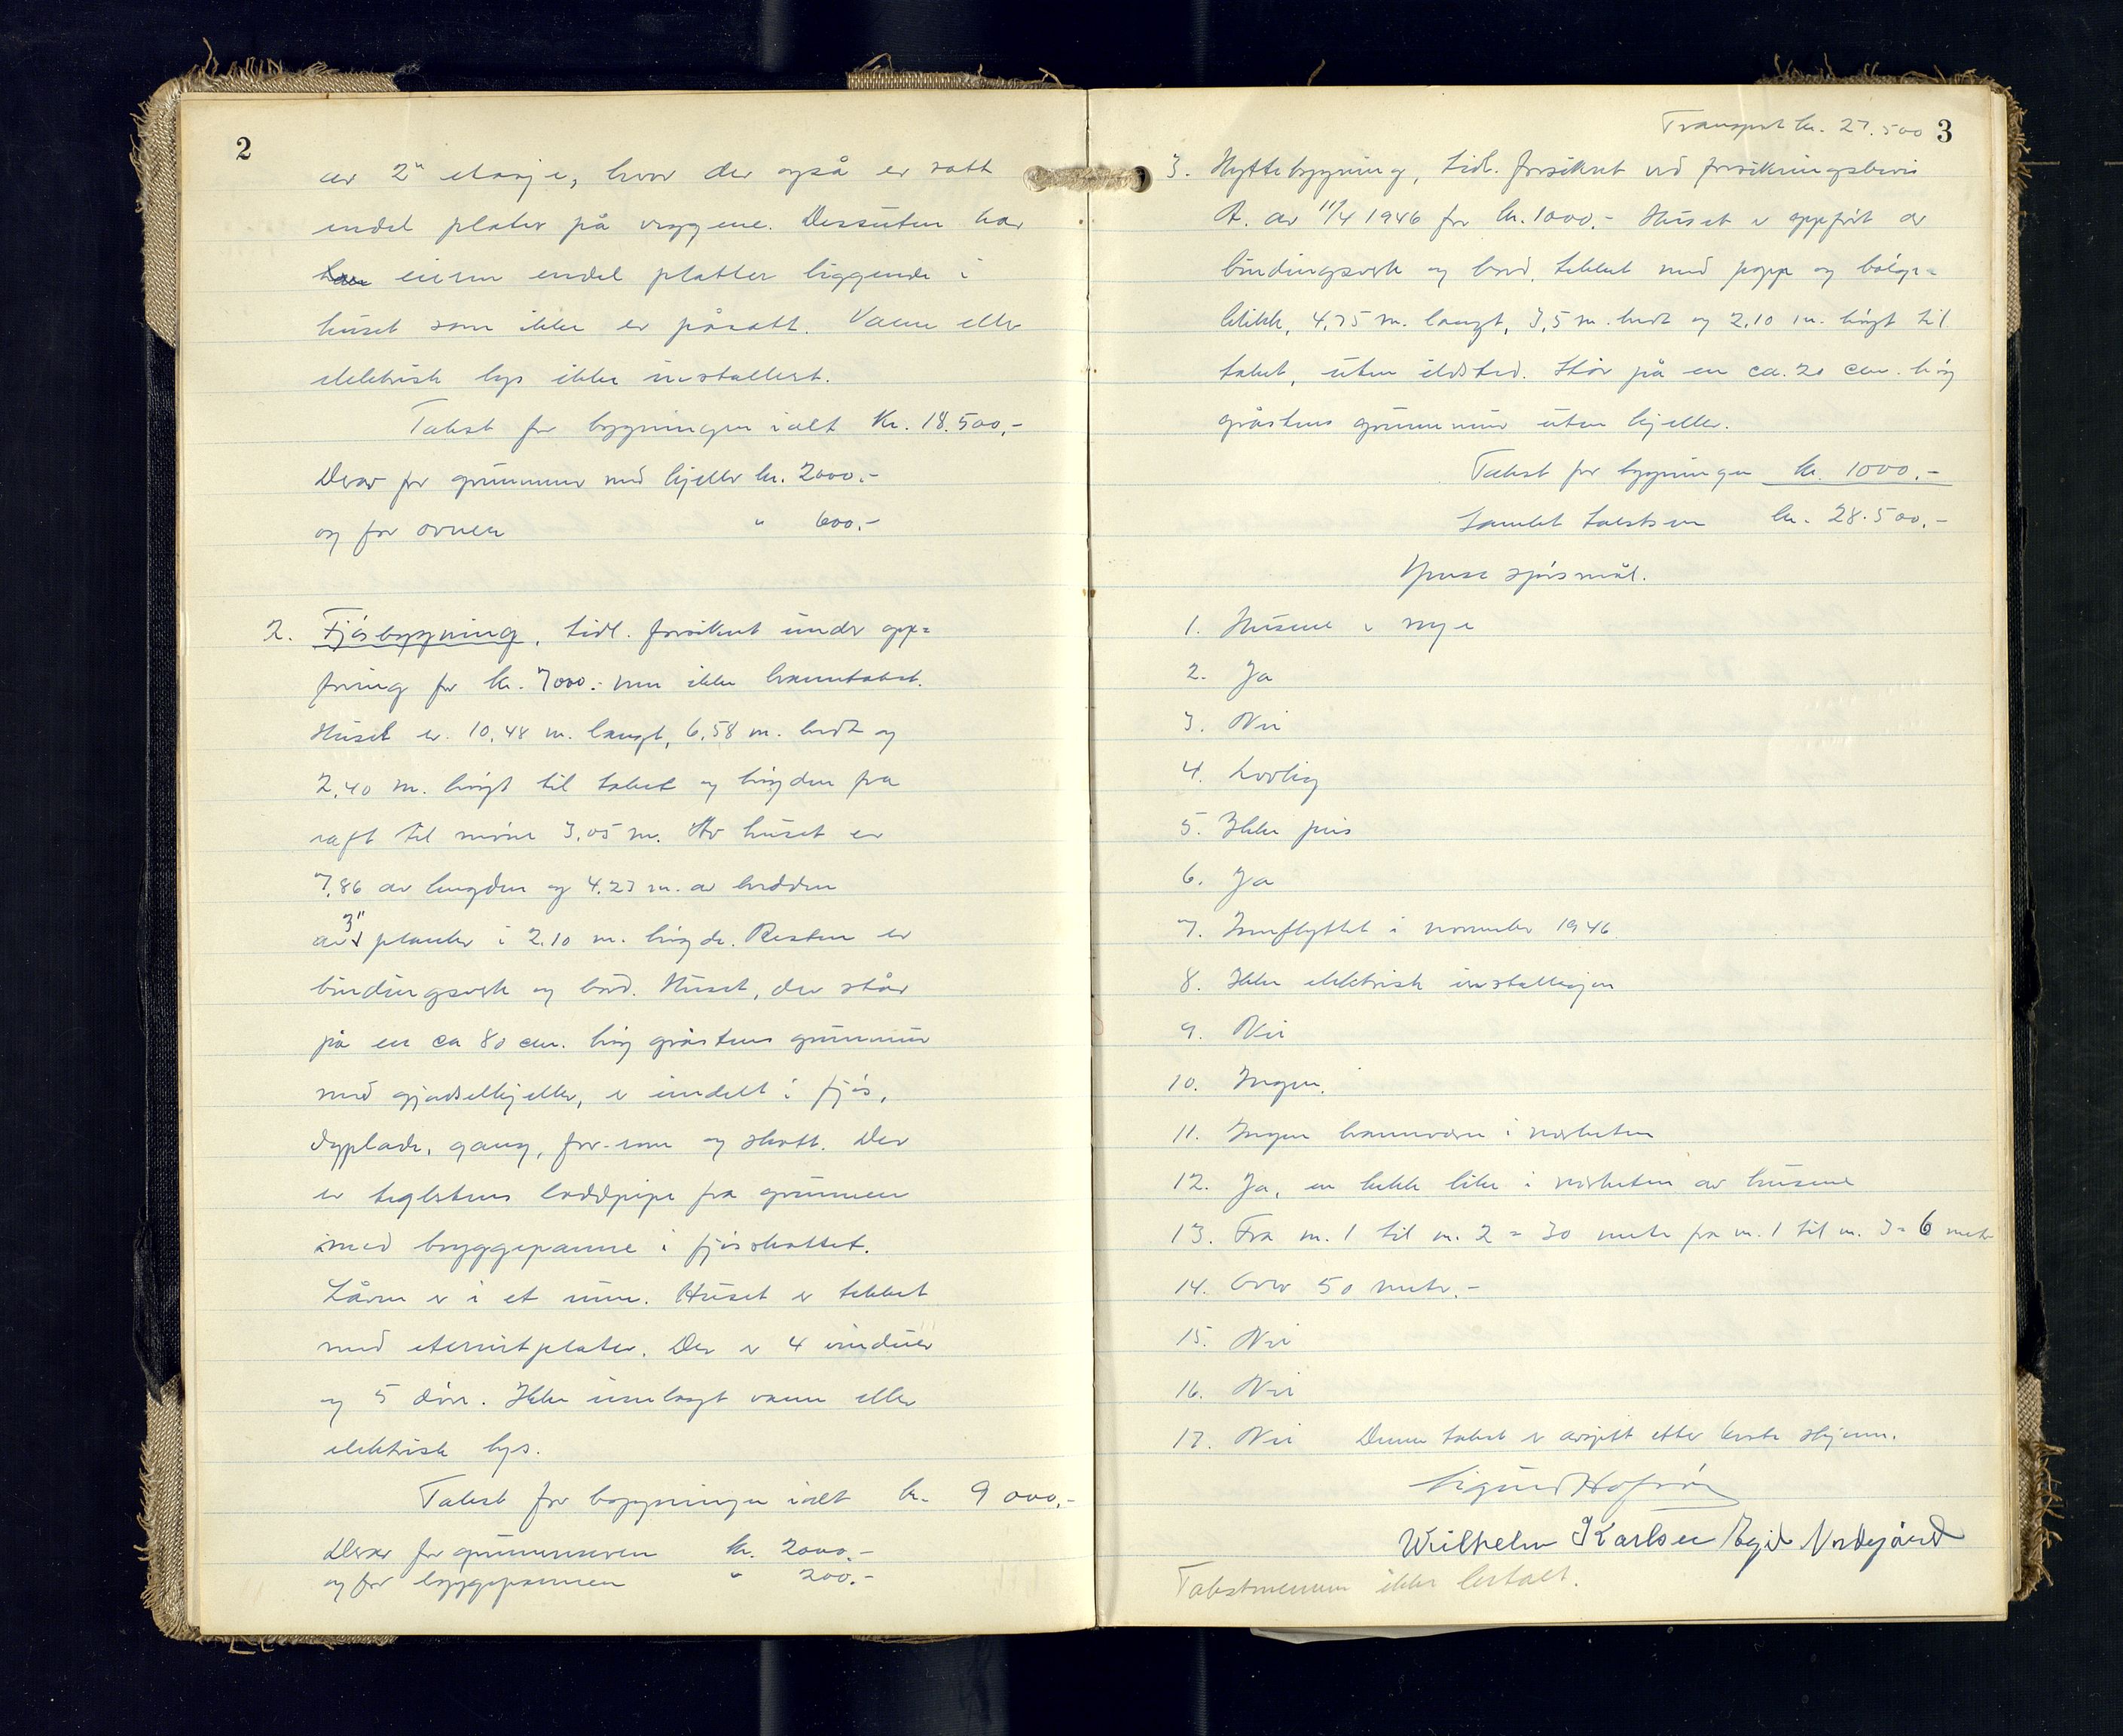 2
av 2" etasje, hvor der også er satt
endel plater på veggene. Dessuten har
eieren endel platter liggende i
huset som ikke er påsatt. Vann eller
elektrisk lys ikke installert.
Takst for bygningen ialt Kr. 18.500,-
Derav for grunnmur med kjeller kr. 2000.-
og for ovnen " 600.-
2. Fjøsbygning, tidl. forsikret under opp=
føring for kr. 7000.- men ikke branntakst.
Huset er 10,48 m. langt, 6,58 m. bredt og
2,40 m. høigt til taket og høyden fra
raft til møne 3,05 m. Av huset er
7,86 av lengden og 4.23 m. av bredden
av 3" planker i 2.10 m. høyde. Resten er
bindingsverk og bord. Huset, der står
på en ca 80 cm. høy gråstens grunnmur
med gjødselkjeller, er inndelt i fjøs,
dyplade, gang, for-rom og skott. Der
er teglstens loddpipe fra grunnen
med bryggepanne i fjøsskottet.
Låven er i et rum. Huset er tekket
med eternitplater. Der er 4 vinduer
og 5 dører. Ikke innlagt vann eller
elektrisk lys.
Takst for bygningen ialt kr. 9 000.-
Derav for grunnmuren kr. 2000.-
og for bryggepannen " 200.-
Transport kr. 27.500 3
3. Hyttebygning, tidl. forsikret ved forsikringsbevis
A. av 11/4 1946 for kr. 1000.- Huset er oppført av
bindingsverk og bord, tekket med papp og bølge=
blikk, 4,75 m. langt, 3,5 m. bredt og 2,10 m. høigt til
taket, uten ildsted. Står på en ca. 20 cm. høy
gråstens grunnmur uten kjeller.
Takst for bygningen kr. 1000.-
Samlet takstsum kr. 28.500.-
Ymse spørsmål.
1. Husene er nye
2. Ja
3. Nei
4. Lovlig
5. Ikke pris
6. Ja
7. Innflyttet i november 1946
8. Ikke elektrisk installasjon
9. Nei
10. Ingen.
11. Ingen brannvesen i nærheten
12. Ja, en bekk like i nærheten av husene
13. Fra nr. 1 til nr. 2 = 30 meter fra nr. 1 til nr. 3 = 6 meter
14. Over 50 meter.-
15. Nei
16. Nei
17. Nei Denne takst er avgitt etter beste skjønn.
Sigurd Hofsøy
Wilhelm Karlsen Egil Nordgård
Takstmennene ikke betalt.